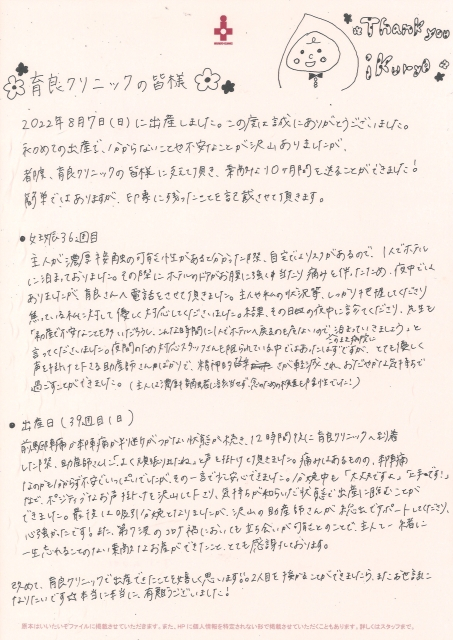 Thank you
ikuryo
育良クリニックの皆様
2022年8月7日(日)に出産しました。この度は誠にありがとうございました。
初めての出産で、分からないことや不安なことが沢山ありましたが、
都度、育良クリニックの皆様に支えて頂き、素敵な10ヶ月間を送ることができました!
簡単ではありますが、印象に残ったことを記載させて頂きます。
● 妊娠36週目
主人が濃厚接触の可能性があると分かった際、自宅でよりスクがあるので、1人でホテル
に泊まっておりました。その際にホテルのドアがお腹に強く当たり痛みを伴ったため、夜中でしん
ありましたが、育良さんへ電話をさせて頂きました。主人や私の状況等、しっかりと把握してくださり
焦っている私に対して優しく対応してくださいました。結果、その日の夜中に診てくださり、先生も
「初産で不安なことも多いだろうし、こんな時間に1人でホテルへ戻るのも危ないので、泊まっていきましょう。」と
言ってくださいました。夜間のため対応スタッフさんも限られている中ではあったはずですが、とても優しく
声を掛けて下さる助産師さんばかりで、精神的な が軽減され、おだやかな気持ちで
過ごすことができました。(主人は濃厚接触者に該当せず、念のための検査も陰性でした!)
● 出産日(39週目(日)
前駆陣痛か本陣痛か判断がつかない状態が続き、12時間ぐらいに育良クリニックへ到着
した際、助産師さんに「よく頑張りましたね。」と声を掛けて頂きました。痛みはあるものの、本陣痛
なのかも分からず不安でいっぱいでしたが、その一言で少し安心できました。分娩中も「大丈夫ですよ」「上手です!」
など、ポジティブなお声掛けを沢山して下さり、気持ちが和らいだ状態で出産に臨むことが
できました。最後は吸引分娩となりましたが、沢山の助産師さんが総出でサポートしてくださり、
心強かったです!また、第7波のコロナ禍においても立ち会いが可能とのことで、主人と一緒に
一生忘れることのない素敵なお産ができたこと、とても感謝しております。
改めて、育良クリニックで出産できたことを嬉しく思います!!2人目を授かることができましたら、またお世話に
なりたいです☆本当に本当に、有難うございました!
原本はいいたいぞファイルに掲載させていただきます。また、HPに個人情報を特定されない形で掲載させていただくこともあります。詳しくはスタッフまで。